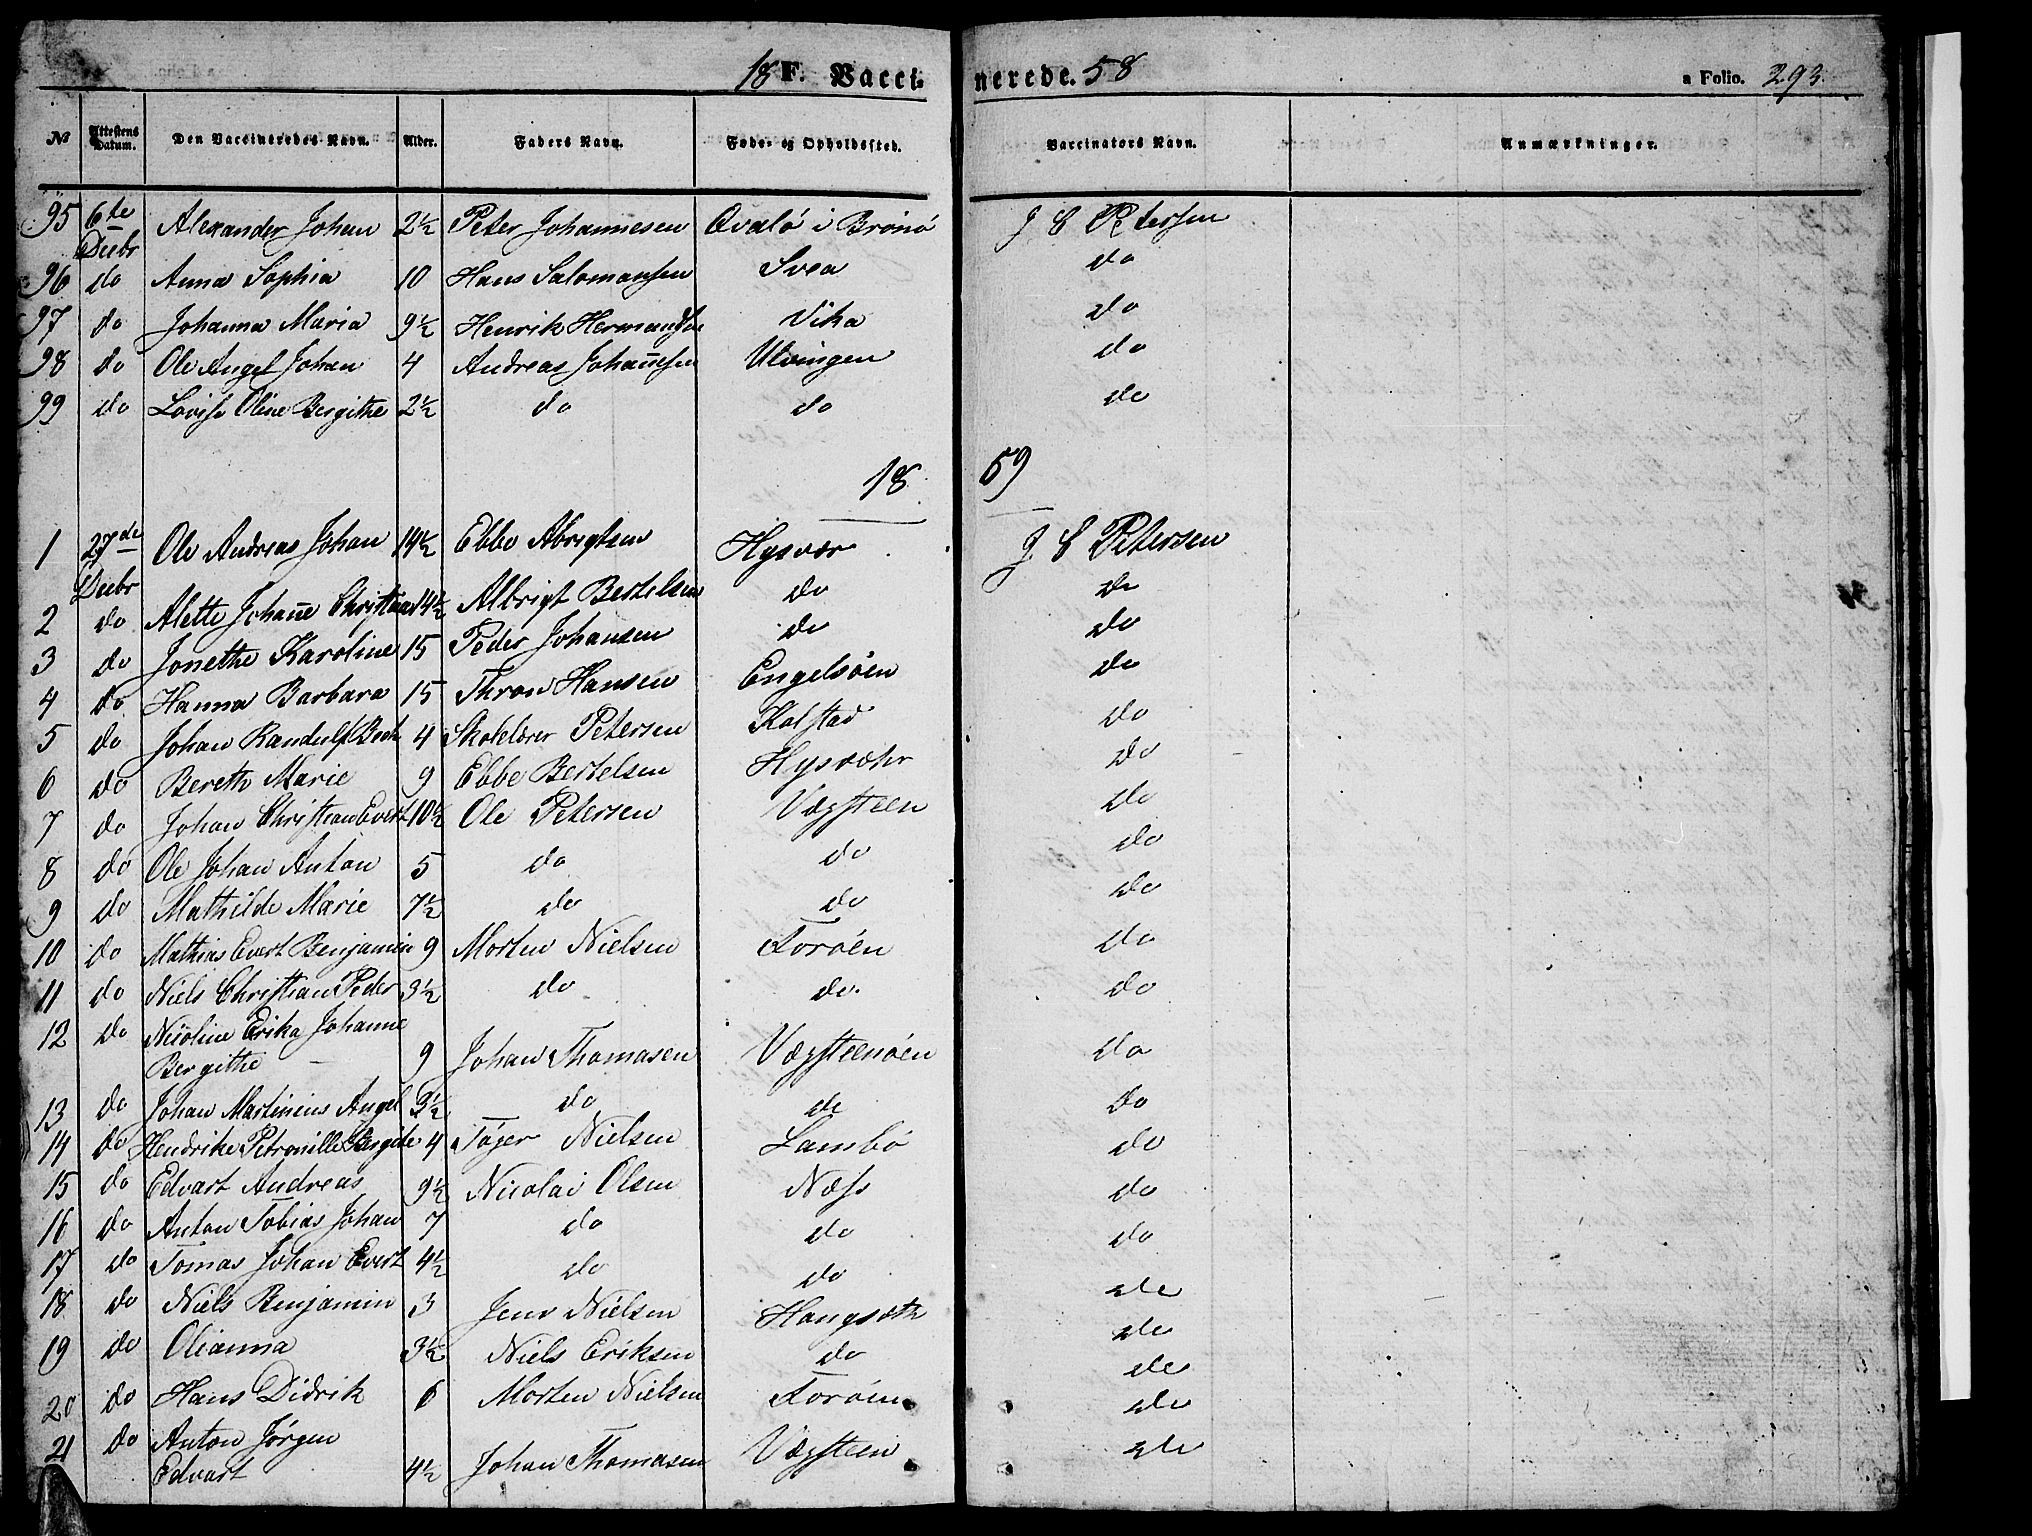 18 F. Vacci- nerede. 58 a Folio. 293.
No Attestens Datum. Den Vaccineredes Navn. Alder. Faders Navn. Føde- og Opholdssted. Vaccinators Navn. Anmærkninger.
95 6te Decbr Alexander Johan 2½ Peter Johannesen Qvalö i Brönö J C Petersen
96 do Anna Sophia 10 Hans Salomonsen Svea do
97 do Johanna Maria 9½ Henrik Hermandsen Vika do
98 do Ole Angel Johan 4 Andreas Johan̄esen Utvingen do
99 do Lovise Oline Bergithe 2½ do do do
18 59
1 27de Decbr Ole Andreas Johan 14½ Ebbe Abrigtsen Hysvær J C Petersen
2 do Alette Johan̄e Christina 14½ Albrigt Bertelsen do do
3 do Jonethe Karoline 15 Peder Johansen do do
4 do Hanna Barbara 15 Thron Hansen Engelsöen do
5 do Johan Randulf Bech 4 Skolelærer Petersen Kolstad do
6 do Bereth Marie 9 Ebbe Bertelsen Hysvæhr do
7 do Johan Christian Evert 10½ Ole Petersen Vægsteen do
8 do Ole Johan Anton 5 do do do
9 do Mathilde Marie 7½ do do do
10 do Mathias Evert Benjamin 9 Morten Nielsen Toröen do
11 do Niels Christian Peder 3½ do do do
12 do Nicoline Erika Johanne
Bergithe 9 Johan Thomasen Vægsteenöen do
13 do Johan Martinius Angel 3½ do do do
14 do Hendrike Petronille Bergite 4 Töger Nielsen Lambö do
15 do Edvart Andreas 9½ Nicolai Olsen Næss do
16 do Anton Tobias Johan 7 do do do
17 do Tomas Johan Evert 4½ do do do
18 do Niels Benjamin 3 Jens Nielsen Hongsæth do
19 do Olianna 3½ Niels Eriksen do do
20 do Hans Didrik 6 Morten Nielsen Toröen do
21 do Anton Jørgen
Edvart 4½ Johan Thomasen Vægsteen do